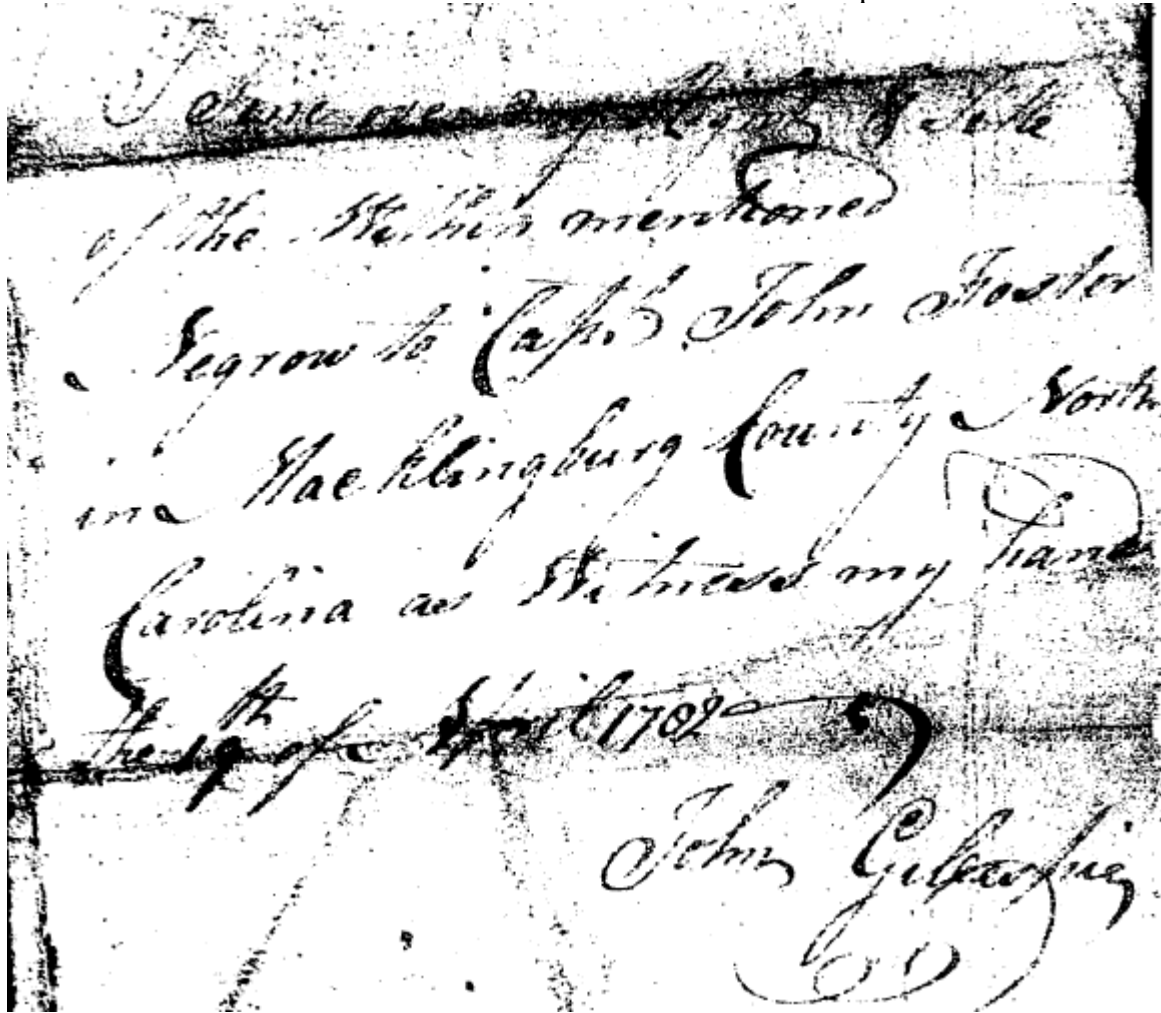 I
of the Within mentioned
Negrow to Capt. John Foster
in Macklingburg County North
Carolina as Witness my hand
the 19th of April 1782
John Gilespie